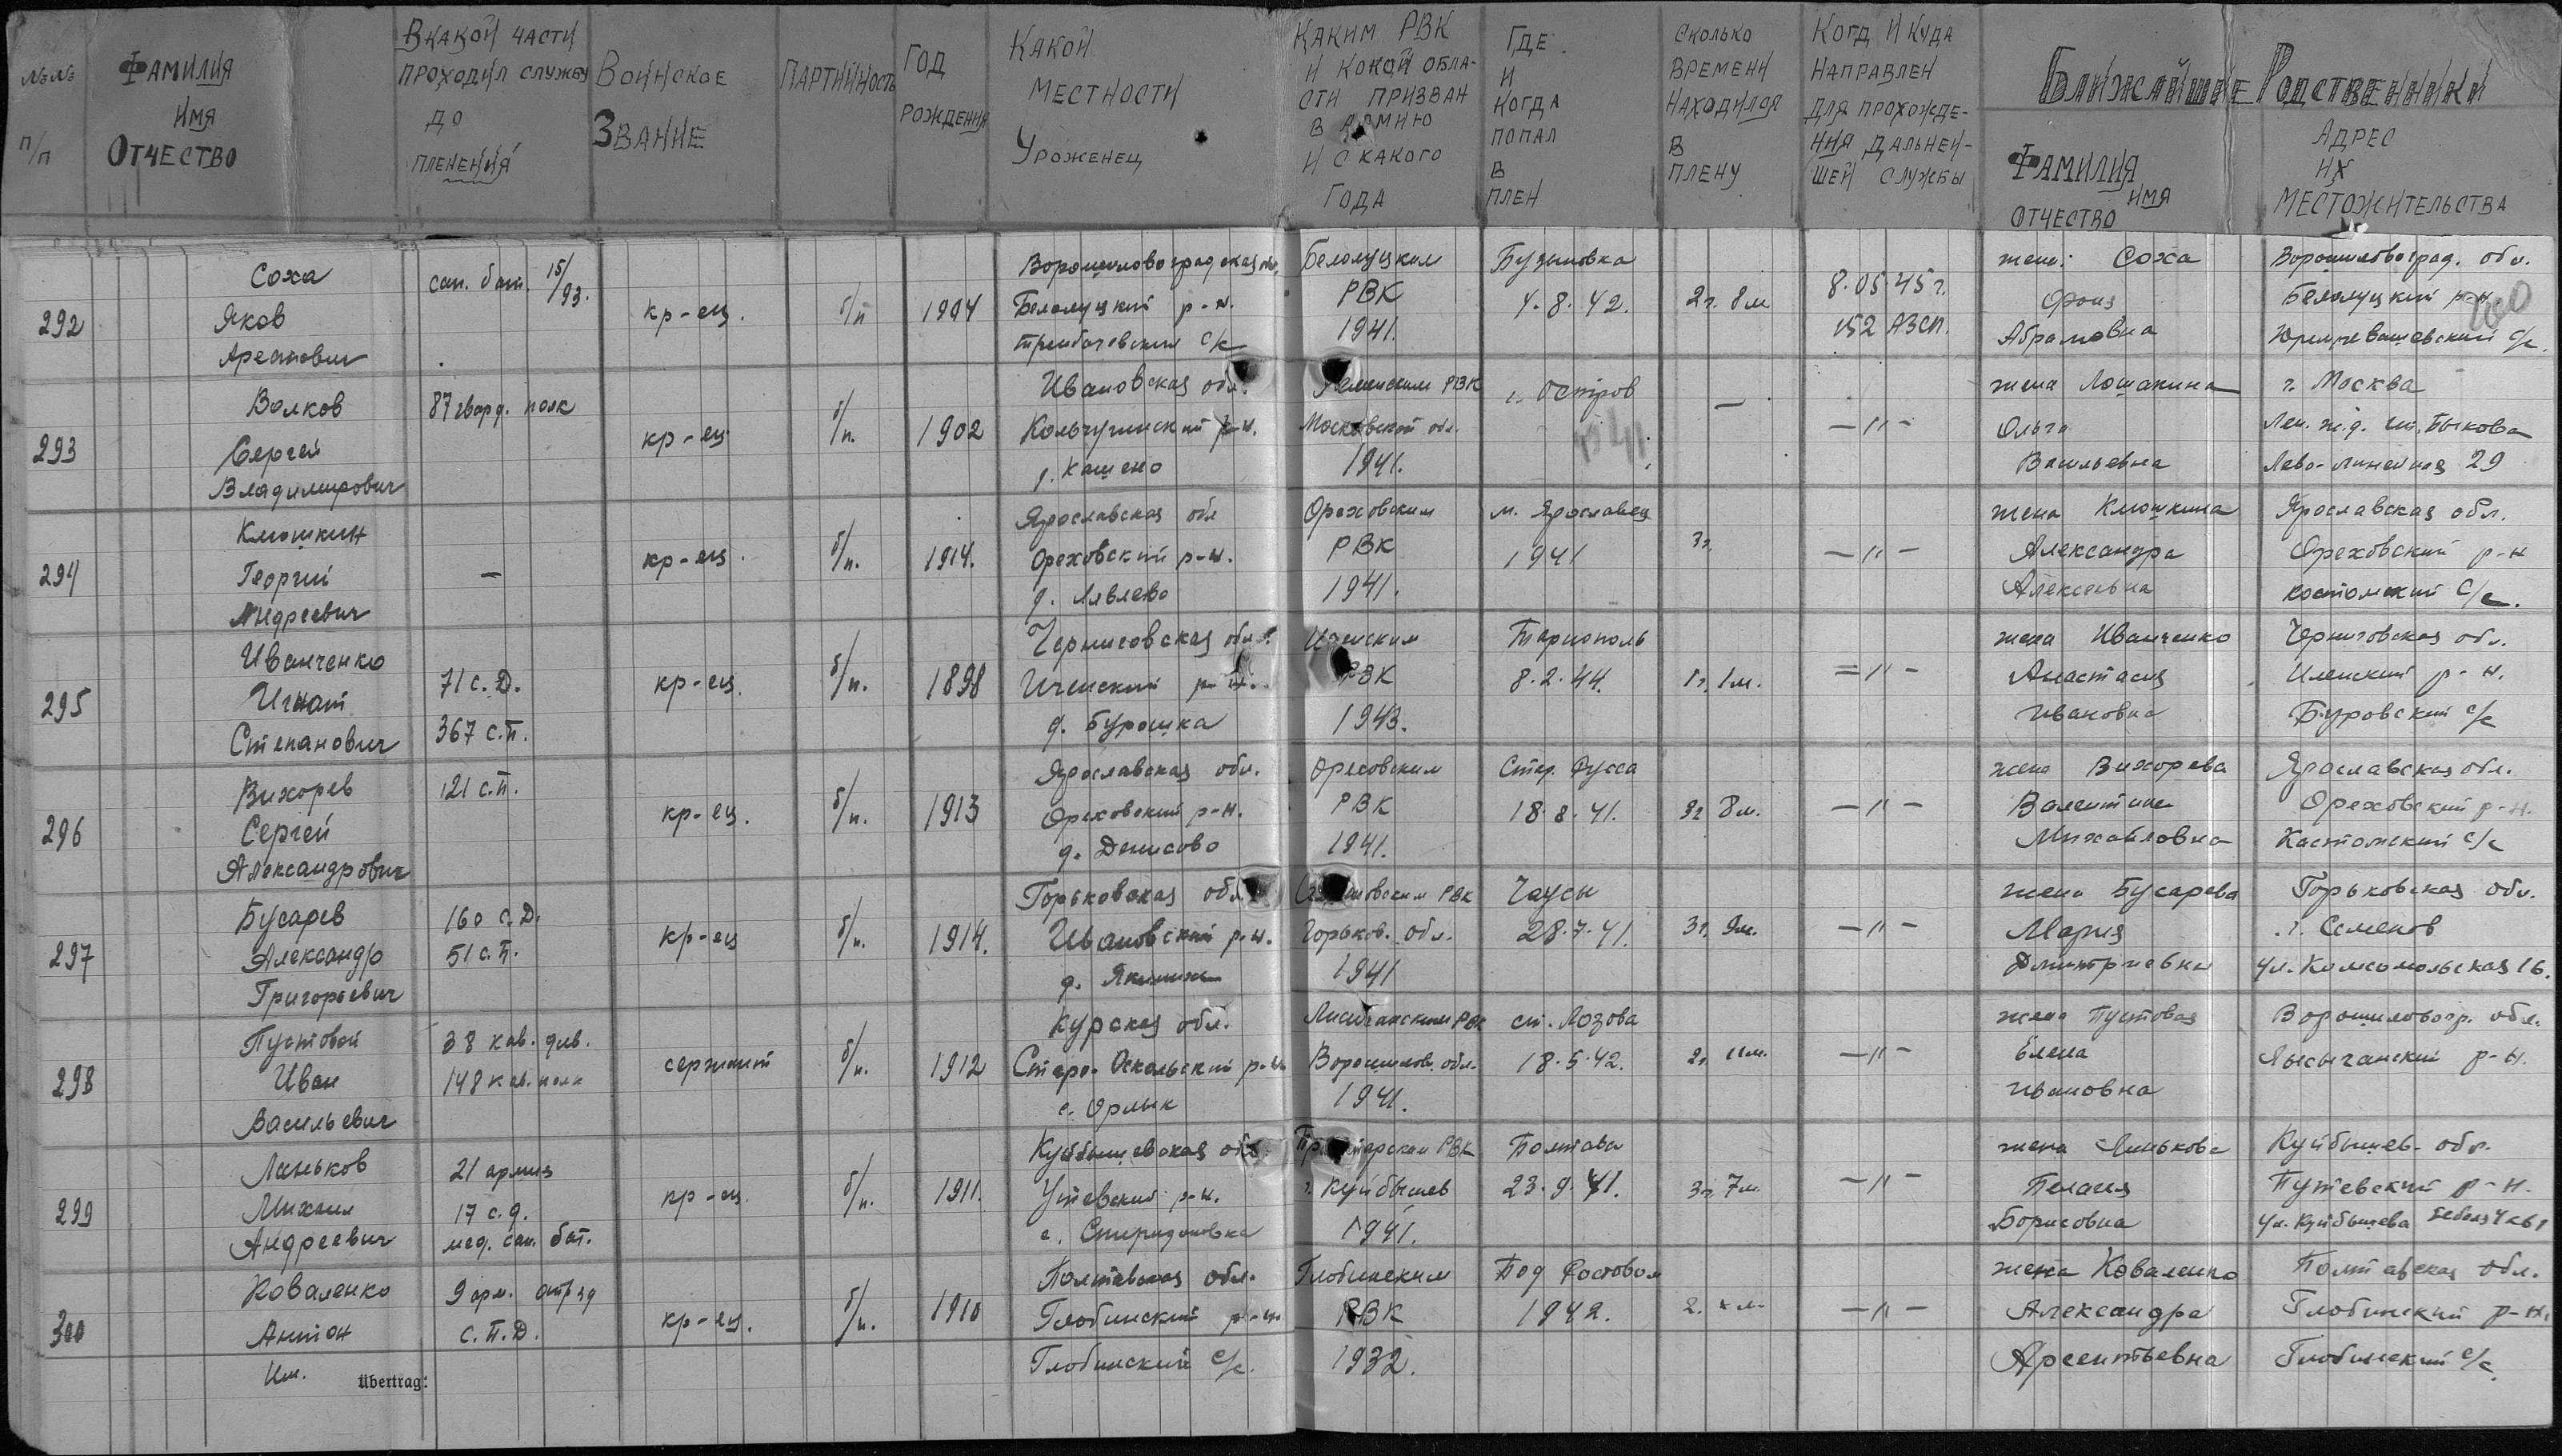 №№ п/п
Фамилия
Имя
Отчество
В какой части
проходил службу
до
пленения
Воинское
Звание
Партийность
Год
рождения
Какой
местности
Уроженец
Каким РВК
и кокой обла-
сти призван
в армию
и с какого
года
Где
и
когда
попал
в
плен
Сколько
времени
находился
в
плену
Когд и куда
направлен
для прохожде-
ния дальней-
шей службы
Ближайшие Родственники
Фамилия
имя
отчество
Адрес
их
местожительства
292
Соха
Яков
сан. бат. 15/93.
кр-ец.
б/п
1904
Ворошиловоградская обл.
Беломуцкий р-н.
с/с
Беломуцким
РВК
1941.
Бузиновка
4.8.42.
2г. 8м
8.05.45г.
152 АЗСП.
жена: Соха
Абрамовна
Ворошиловоград. обл.
Беломуцкий р-н
с/с.
200
293
Волков
Сергей
Владимирович
87 гвард. полк
кр-ец
б/п.
1902
Ивановская обл.
Кольчугинский р-н.
РВК
Московской обл.
1941.
г. Остров
1941
—
—"—
жена Лошакина
Ольга
Васильевна
г. Москва
Лен. ж.д. ст. Быкова
Лево-линейная 29
294
Клюшкин
Георгий
Андреевич
—
кр-ец.
б/п.
1914.
Ярославская обл
Ореховский р-н.
д. Лявлево
Ореховским
РВК
1941.
м. Ярославец
1941
3г.
—"—
жена Клюшкина
Александра
Алексеевна
Ярославская обл.
Ореховский р-н
Костомский с/с.
295
Иванченко
Игнат
Степанович
71 с.Д.
367 с.п.
кр-ец.
б/п.
1898
Черниговская обл.
Иченский р-н.
РВК
1943.
Тарнополь
8.2.44.
1г. 1м.
="—
жена Иванченко
Анастасия
Ивановна
Черниговская обл.
р-н.
Буровский с/с
296
Вихорев
Сергей
Александрович
121 с.п.
кр-ец.
б/п.
1913
Ярославская обл.
Ореховский р-н.
д. Денисово
Ореховским
РВК
1941.
Стар. Русса
18.8.41.
3г 8м.
—"—
жена Вихорева
Валентина
Михайловна
Ярославская обл.
Ореховский р-н.
Костомский с/с
297
Бусарев
Александр
Григорьевич
160 с.Д.
51 с.п.
кр-ец
б/п.
1914.
Горьковская обл.
Ивановский р-н.
РВК
Горьков. обл.
1941
Чаусы
28.7.41.
3г. 9м.
—"—
жена Бусарева
Мария
Дмитриевна
Горьковская обл.
г. Семенов
ул. Комсомольская 16.
298
Пустовой
Иван
Васильевич
38 кав. див.
148 кав. полк
сержант
б/п.
1912
Курская обл.
Старо-Оскольский р-н
с. Орлик
Лисичанским РВК
Ворошилов. обл.
1941.
ст. Лозова
18.5.42.
2г. 11м.
—"—
жена Пустовая
Елена
Ивановна
Ворошиловогр. обл.
Лысычанский р-н.
299
Ланьков
Михаил
Андреевич
21 армия
17 с.д.
мед. сан. бат.
кр-ец
б/п.
1911.
Куйбышевская обл.
Утевский р-н.
с. Спиридоновка
РВК
г. Куйбышев
1941.
Полтава
23.9.41.
3г. 7м.
—"—
жена
Пелагея
Борисовна
Куйбышев. обл.
р-н.
ул. Куйбышева
300
Коваленко
Антон
Ив.
9 арм. отряд
с.п.д.
кр-ец.
б/п.
1910
Полтавская обл.
Глобинский р-н
Глобинский с/с.
Глобинским
РВК
1932.
Под Ростовом
1942.
—"—
жена Коваленко
Александра
Арсентьевна
Полтавская обл.
Глобинский р-н.
Глобинский с/с
Übertrag: